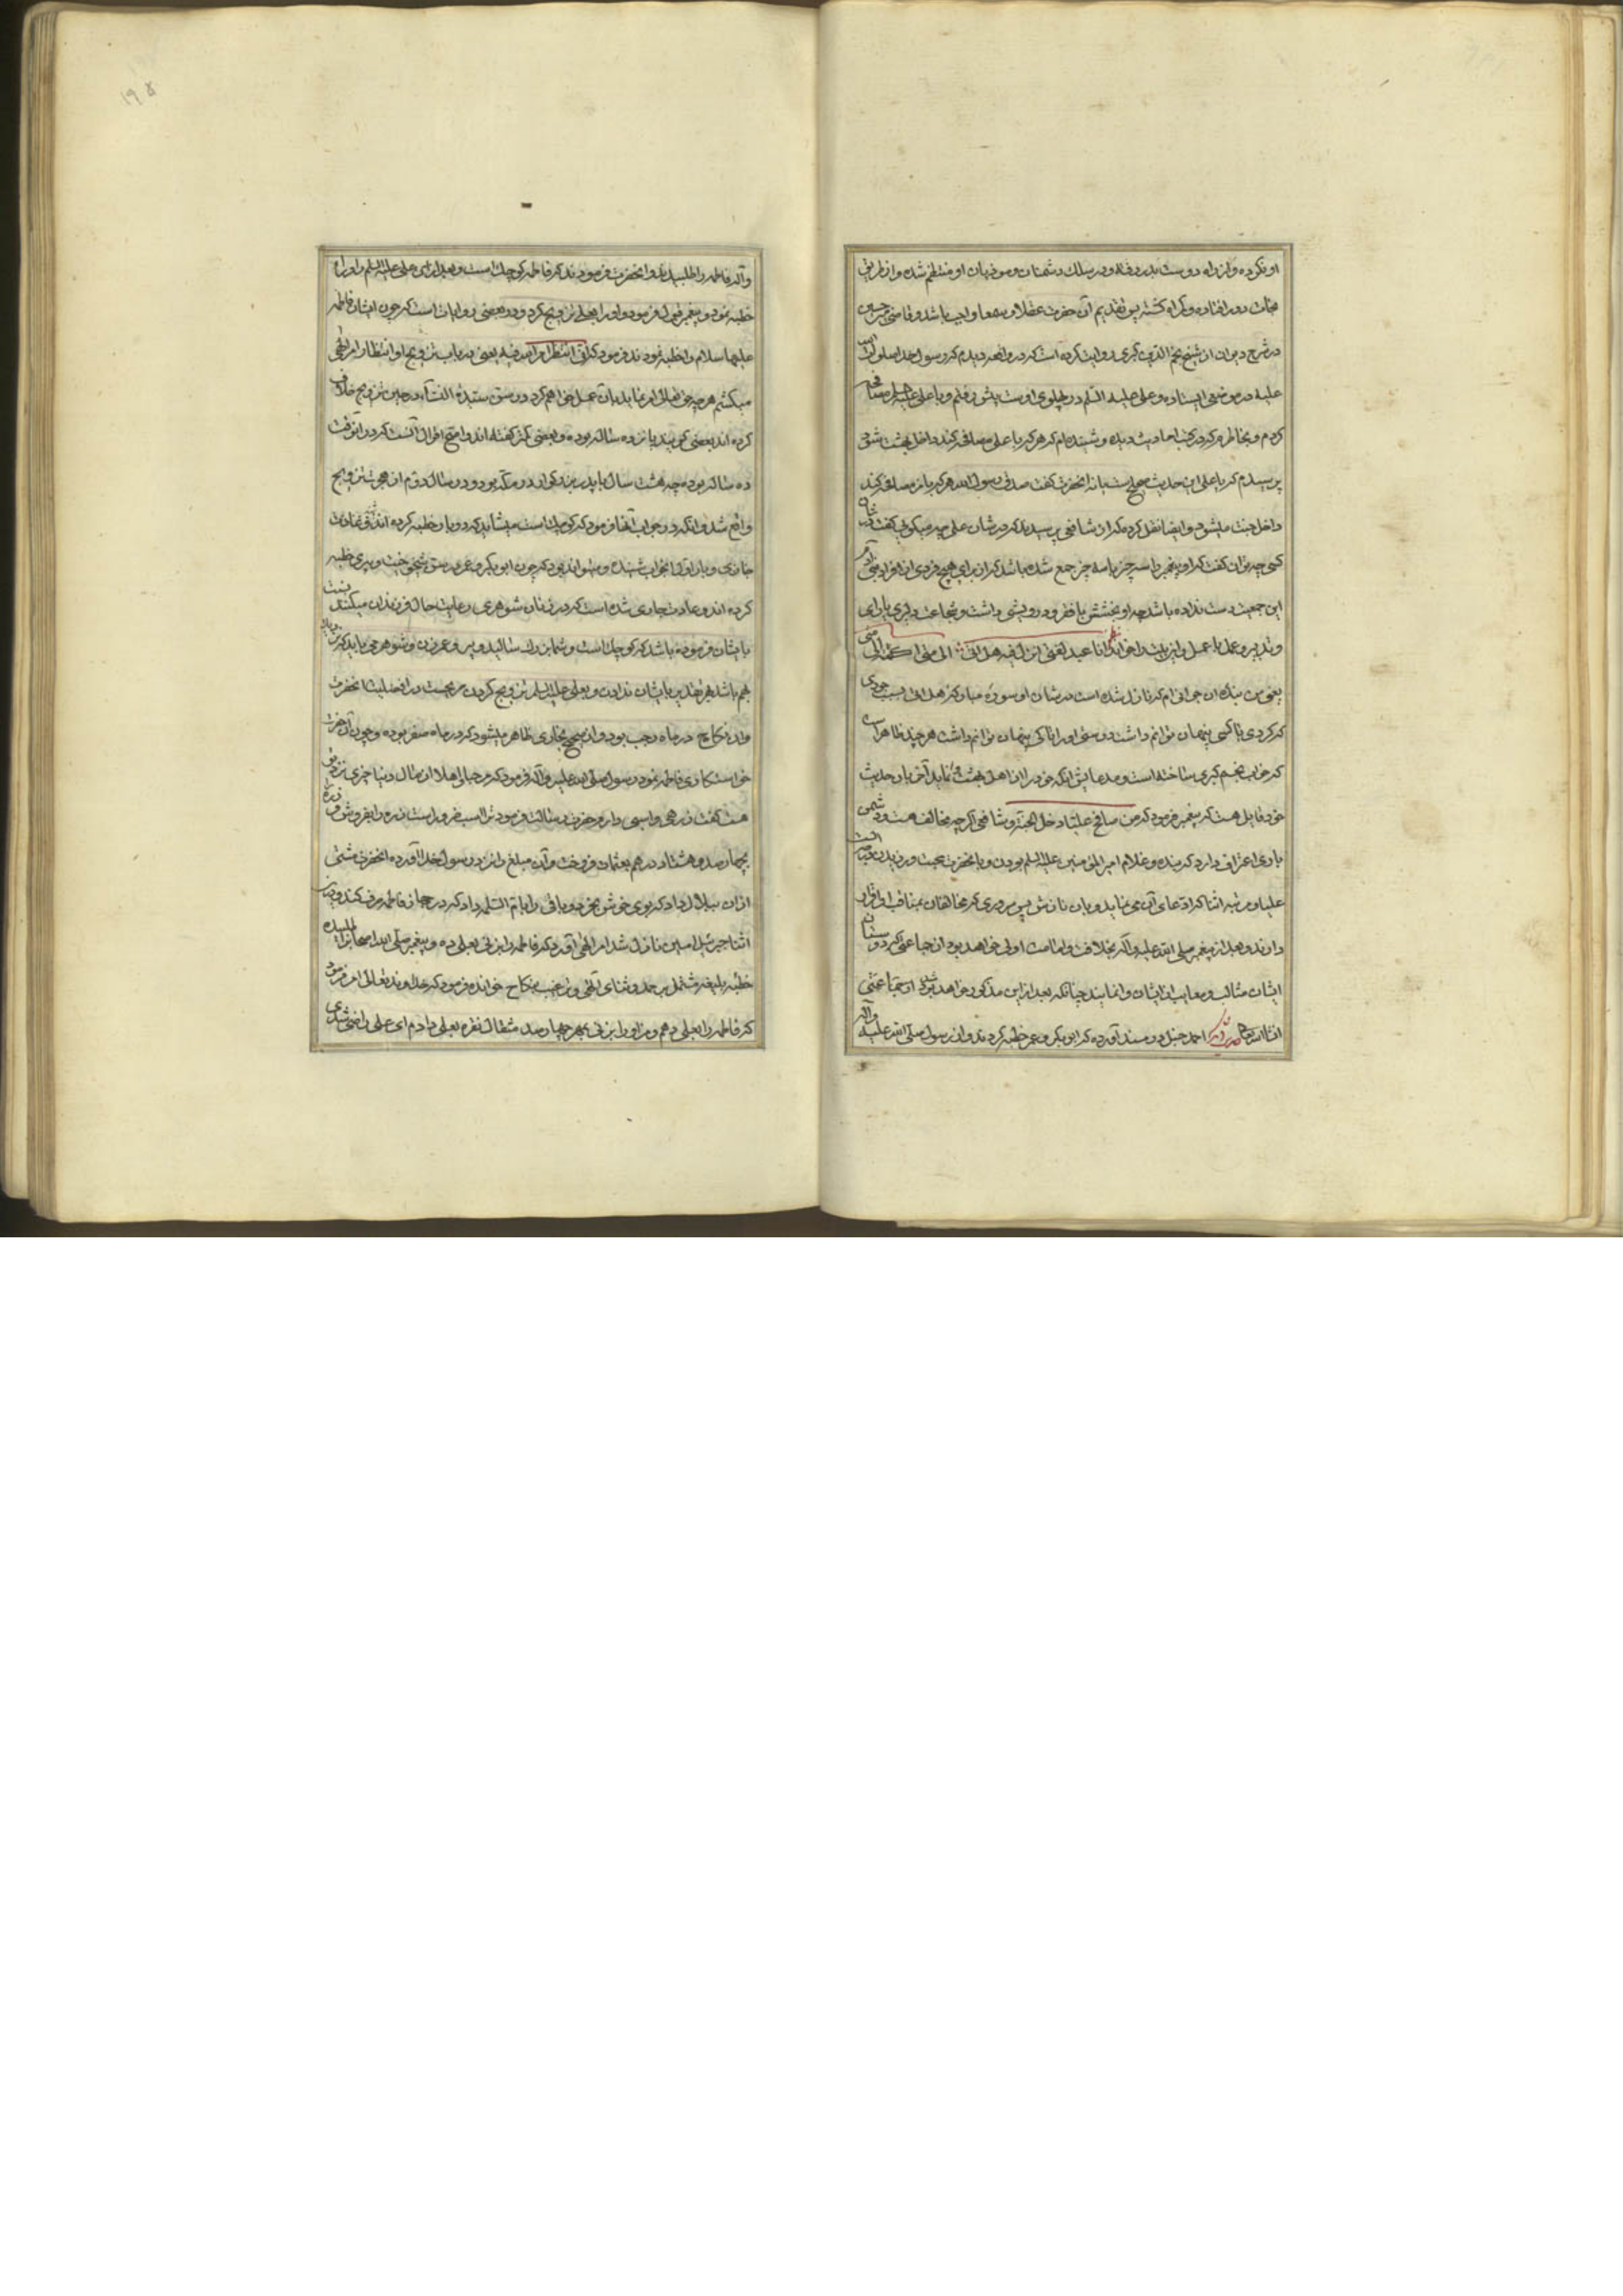 او نکرده و از راه دوست بدر رفته و در سلک دشمنان و موذیان او منتظم شده و از طریق
نجات دور افتاده و گمراه گشته پس تقدیم آن حضرت عقلا و سمعا واجب باشد و قاضی میر حسین
در شرح دیوان از شیخ نجم الدین کبری روایت کرده است که در واقعه دیدم که رسول خدا صلوات الله
علیه در موضعی ایستاده و علی علیه السلم در پهلوی اوست پیش رفتم و با علی علیه السلم مصافحه
کردم و بخاطرم که در کتب احادیث دیده و شنیده‌ام که هر که با علی مصافحه کند داخل بهشت شود
پرسیدم که یا علی این حدیث صحیح است یا نه آنحضرت گفت صدق رسول الله هر که با من مصافحه کند
داخل جنت میشود و ایضا نقل کرده که از شافعی پرسیدند که در شان علی چه میگوئی گفت در شان
کسی چه توان گفت که او پیغمبر را سه چیز با سه چیز جمع شده باشد که از برای هیچ فردی از افراد بنی آدم
این جمعیت دست نداده باشد چه او بخشش با فقر و درویشی داشت و شجاعت و دلیری با رای
و تدبیر و علم با عمل و این بیت را خواند انا عبد لفتی انزل فیه هل اتی الی متی اکتمه الی متی
یعنی من بنده آن جوانی‌ام که نازل شده است در شان او سوره مبارکه هل اتی و سبب جودی
که کردی تا کی پنهان توانم داشت دوستی او را تا کی پنهان توانم داشت هر چند ظاهر است
که خواب نجم کبری ساخته است و مدعایش آنکه خود را از اهل بهشت وا نماید آخر بان حدیث
خود قایل هست که پیغمبر فرمود که من صافح علیا دخل الجنة و شافعی اگر چه مخالف هست و دشمن
باری اعتراف دارد که بنده و غلام امیر المؤمنین علیه السلم بودن و با آنحضرت محبت ورزیدن دنیا و آخرت
علیا و مرتبه اثنا که ادعای آن می نماید و بان نازش پس سروری که مخالفان بمناقب او اقرار
دارند و بعد از پیغمبر صلی الله علیه و آله بخلافت و امامت اولی خواهد بود از جماعتی که دوستان
ایشان مثالب و معایب ایشان وا نمایند چنانکه بعد از این مذکور خواهد شد از جماعتی
انشاء الله تعالی احمد حنبل در مسند آورده که ابو بکر و عمر خطبه کردند و از رسول صلی الله علیه و آله
۱۹۵
و آله فاطمه را طلبیدند و آنحضرت فرمودند که فاطمه کوچک است و بعد از ان علی علیه السلم او را
خطبه نمود و پیغمبر قبول فرمود و او را بعلی تزویج کرد و در بعضی روایات است که چون ایشان فاطمه
علیها سلام را خطبه نمودند فرمود که انی انتظر امر الله فیه یعنی در باب تزویج او انتظار امر الهی
میکشم هر چه حق تعالی امر نماید بان عمل خواهم کرد در سن سیدة النساء در حین تزویج خلاف
کرده‌اند بعضی گویند پانزده ساله بوده و بعضی کمتر گفته‌اند و اصح اقوال آنست که در آنوقت
ده ساله بوده چه هشت سال با پدر بزرگوار در مکه بود و در سال دوم از هجرت تزویج
واقع شد و آنکه در جواب آنها فرمود که کوچک است میشاید که دو بار خطبه کرده اند
و میتواند بود که چون ابو بکر و عمر در سن شیخوخیت و پیری خطبه
کرده اند و عادت جاری شده است که در زنان شوهری رعایت حال فرزندان میکنند نسبت
بایشان فرموده باشد که کوچک است و شما بزرگ سالید و پیر و عمر زن و شوهر می باید که نزدیک
بهم باشد بهر تقدیر بایشان ندادن و بعلی علیه السلم تزویج کردن صریحست در افضلیت آنحضرت
و این نکاح در ماه رجب بود و از صحیح بخاری ظاهر میشود که در ماه صفر بوده و چون آنحضرت
خواستگاری فاطمه نمود رسول صلی الله علیه و آله فرمود که مرحبا و اهلا از مال دنیا چیزی نزد تو
هست گفت زرهی و اسبی دارم حضرت رسالت فرمود ترا اسب ضرور است زره را بفروش و زره
بچهار صد و هشتاد درهم بعثمان فروخت و آن مبلغ را نزد رسول خدا آورده آنحضرت مشتی
ازان ببلال داد که بوی خوش بخرد و باقی را بام السلمه داد که در جهاز فاطمه صرف کند و در این
اثنا جبرئیل امین نازل شد امر الهی آورد که فاطمه را بزنی بعلی ده و پیغمبر صلی الله اصحاب را طلبیده
خطبه بلیغه مشتمل بر حمد و ثنای الهی و ترغیب بنکاح خوانده فرمود که خداوند تعالی امر فرمود
که فاطمه را بعلی دهم و من او را بزنی بمهر چهار صد مثقال نقره بعلی دادم ای علی راضی شدی